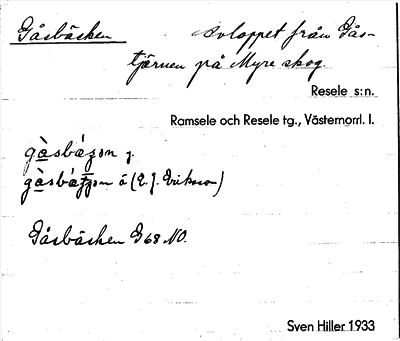 Gåsbäcken Avloppet från Gås-
tjärnen på Myre skog.
Resele s:n.
Ramsele och Resele tg., Västernorrl. l.
gå̀sbä́ʒɘn y.
gå̀sbä́ʒɘn ä (E. J. Eriksson)
Gåsbäcken G68 NO.
Sven Hiller 1933